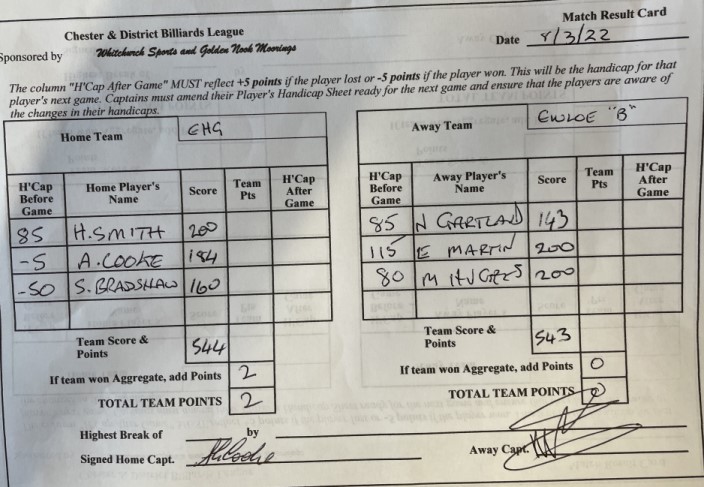 Match Result Card
Chester & District Billiards League
Sponsored by Whitchurch Sports and Golden Nook Moorings
Date 8/3/22
The column "H'Cap After Game" MUST reflect +5 points if the player lost or -5 points if the player won. This will be the handicap for that
player's next game. Captains must amend their Player's Handicap Sheet ready for the next game and ensure that the players are aware of
the changes in their handicaps.
Home Team EHG
H'Cap Before Game Home Player's Name Score Team Pts H'Cap After Game
85 H.SMITH 200
-5 A.COOKE 184
-50 S.BRADSHAW 160
Team Score & Points 544
If team won Aggregate, add Points 2
TOTAL TEAM POINTS 2
Away Team EWLOE "B"
H'Cap Before Game Away Player's Name Score Team Pts H'Cap After Game
85 N GARTLAND 143
115 E MARTIN 200
80 M HUGHES 200
Team Score & Points 543
If team won Aggregate, add Points 0
TOTAL TEAM POINTS 0
Highest Break of by
Signed Home Capt. A Cooke
Away Capt.